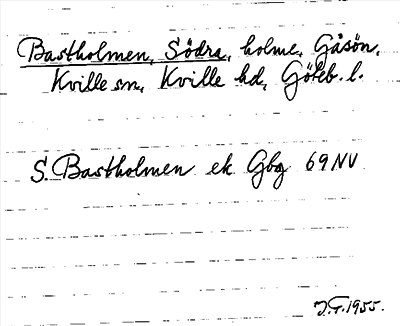 Bastholmen, Södra, holme, Gåsön,
Kville sn, Kville hd, Göteb. l.
S. Bastholmen ek Gbg 69 NV
J.F. 1955.